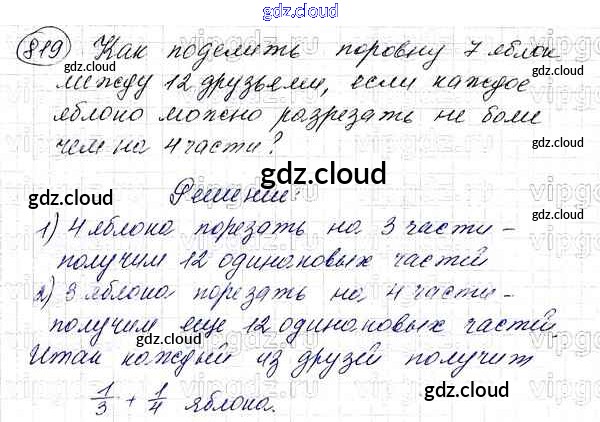 gdz.cloud
819 Как поделить поровну 7 яблок
gdz.cloud gdz.cloud
между 12 друзьями, если каждое
яблоко можно разрезать не боле
чем на 4 части?
gdz.cloud
Решение:
gdz.cloud gdz.cloud
1) 4 яблока порезать на 3 части -
получим 12 одинаковых частей
2) 3 яблока порезать на 4 части -
получим еще 12 одинаковых частей.
Итак каждый из друзей получит
1/3 + 1/4 яблока.
gdz.cloud gdz.cloud